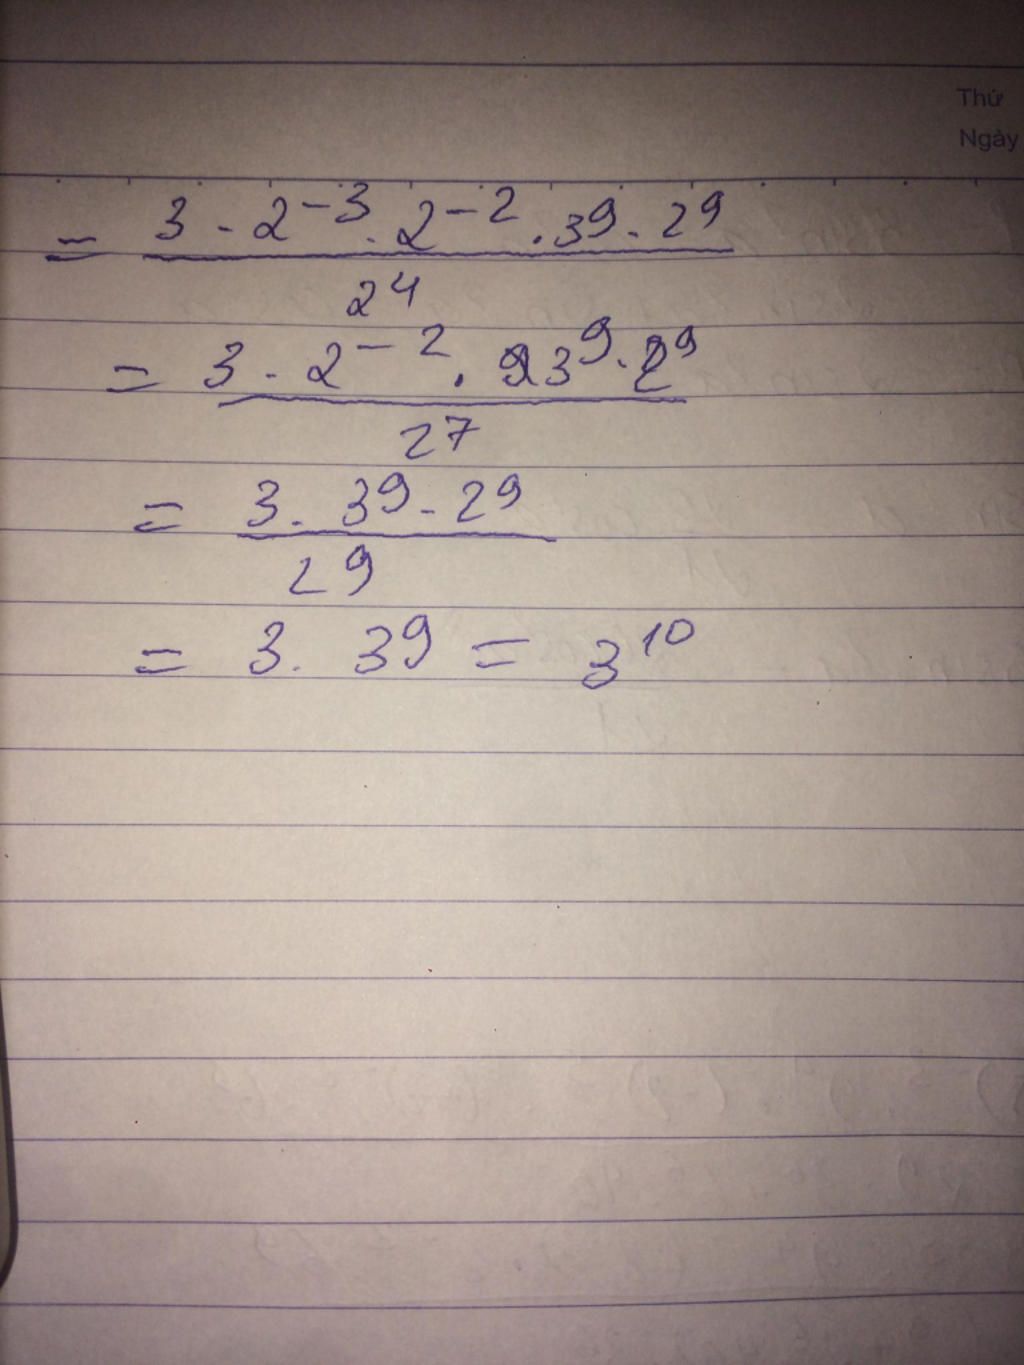 Thứ
Ngày
= 3 . 2^-3 . 2^-2 . 3^9 . 2^9
2^4
= 3 . 2^-2 . 3^9 . 2^9
2^7
= 3 . 3^9 . 2^9
2^9
= 3 . 3^9 = 3^10